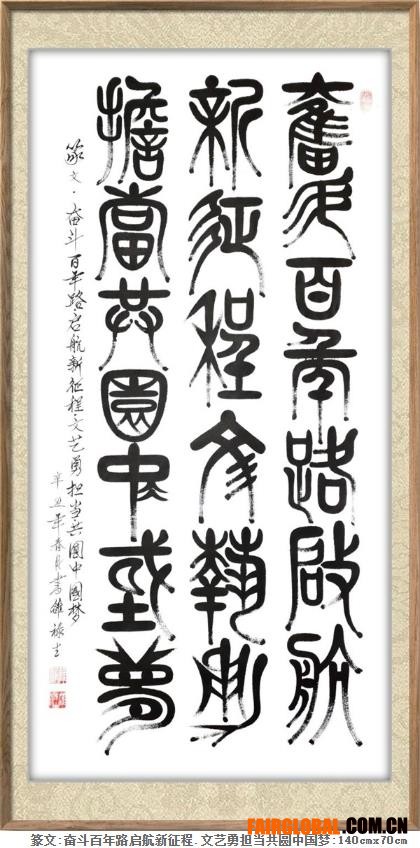 奮斗百年路啟航
新征程文藝勇
擔當共圓中國夢
篆文·奋斗百年路启航新征程文艺勇担当共圆中國梦
辛丑年春月書
FAIRGLOBAL.COM.CN
篆文:奋斗百年路启航新征程.文艺勇担当共圆中国梦:140cmx70cm